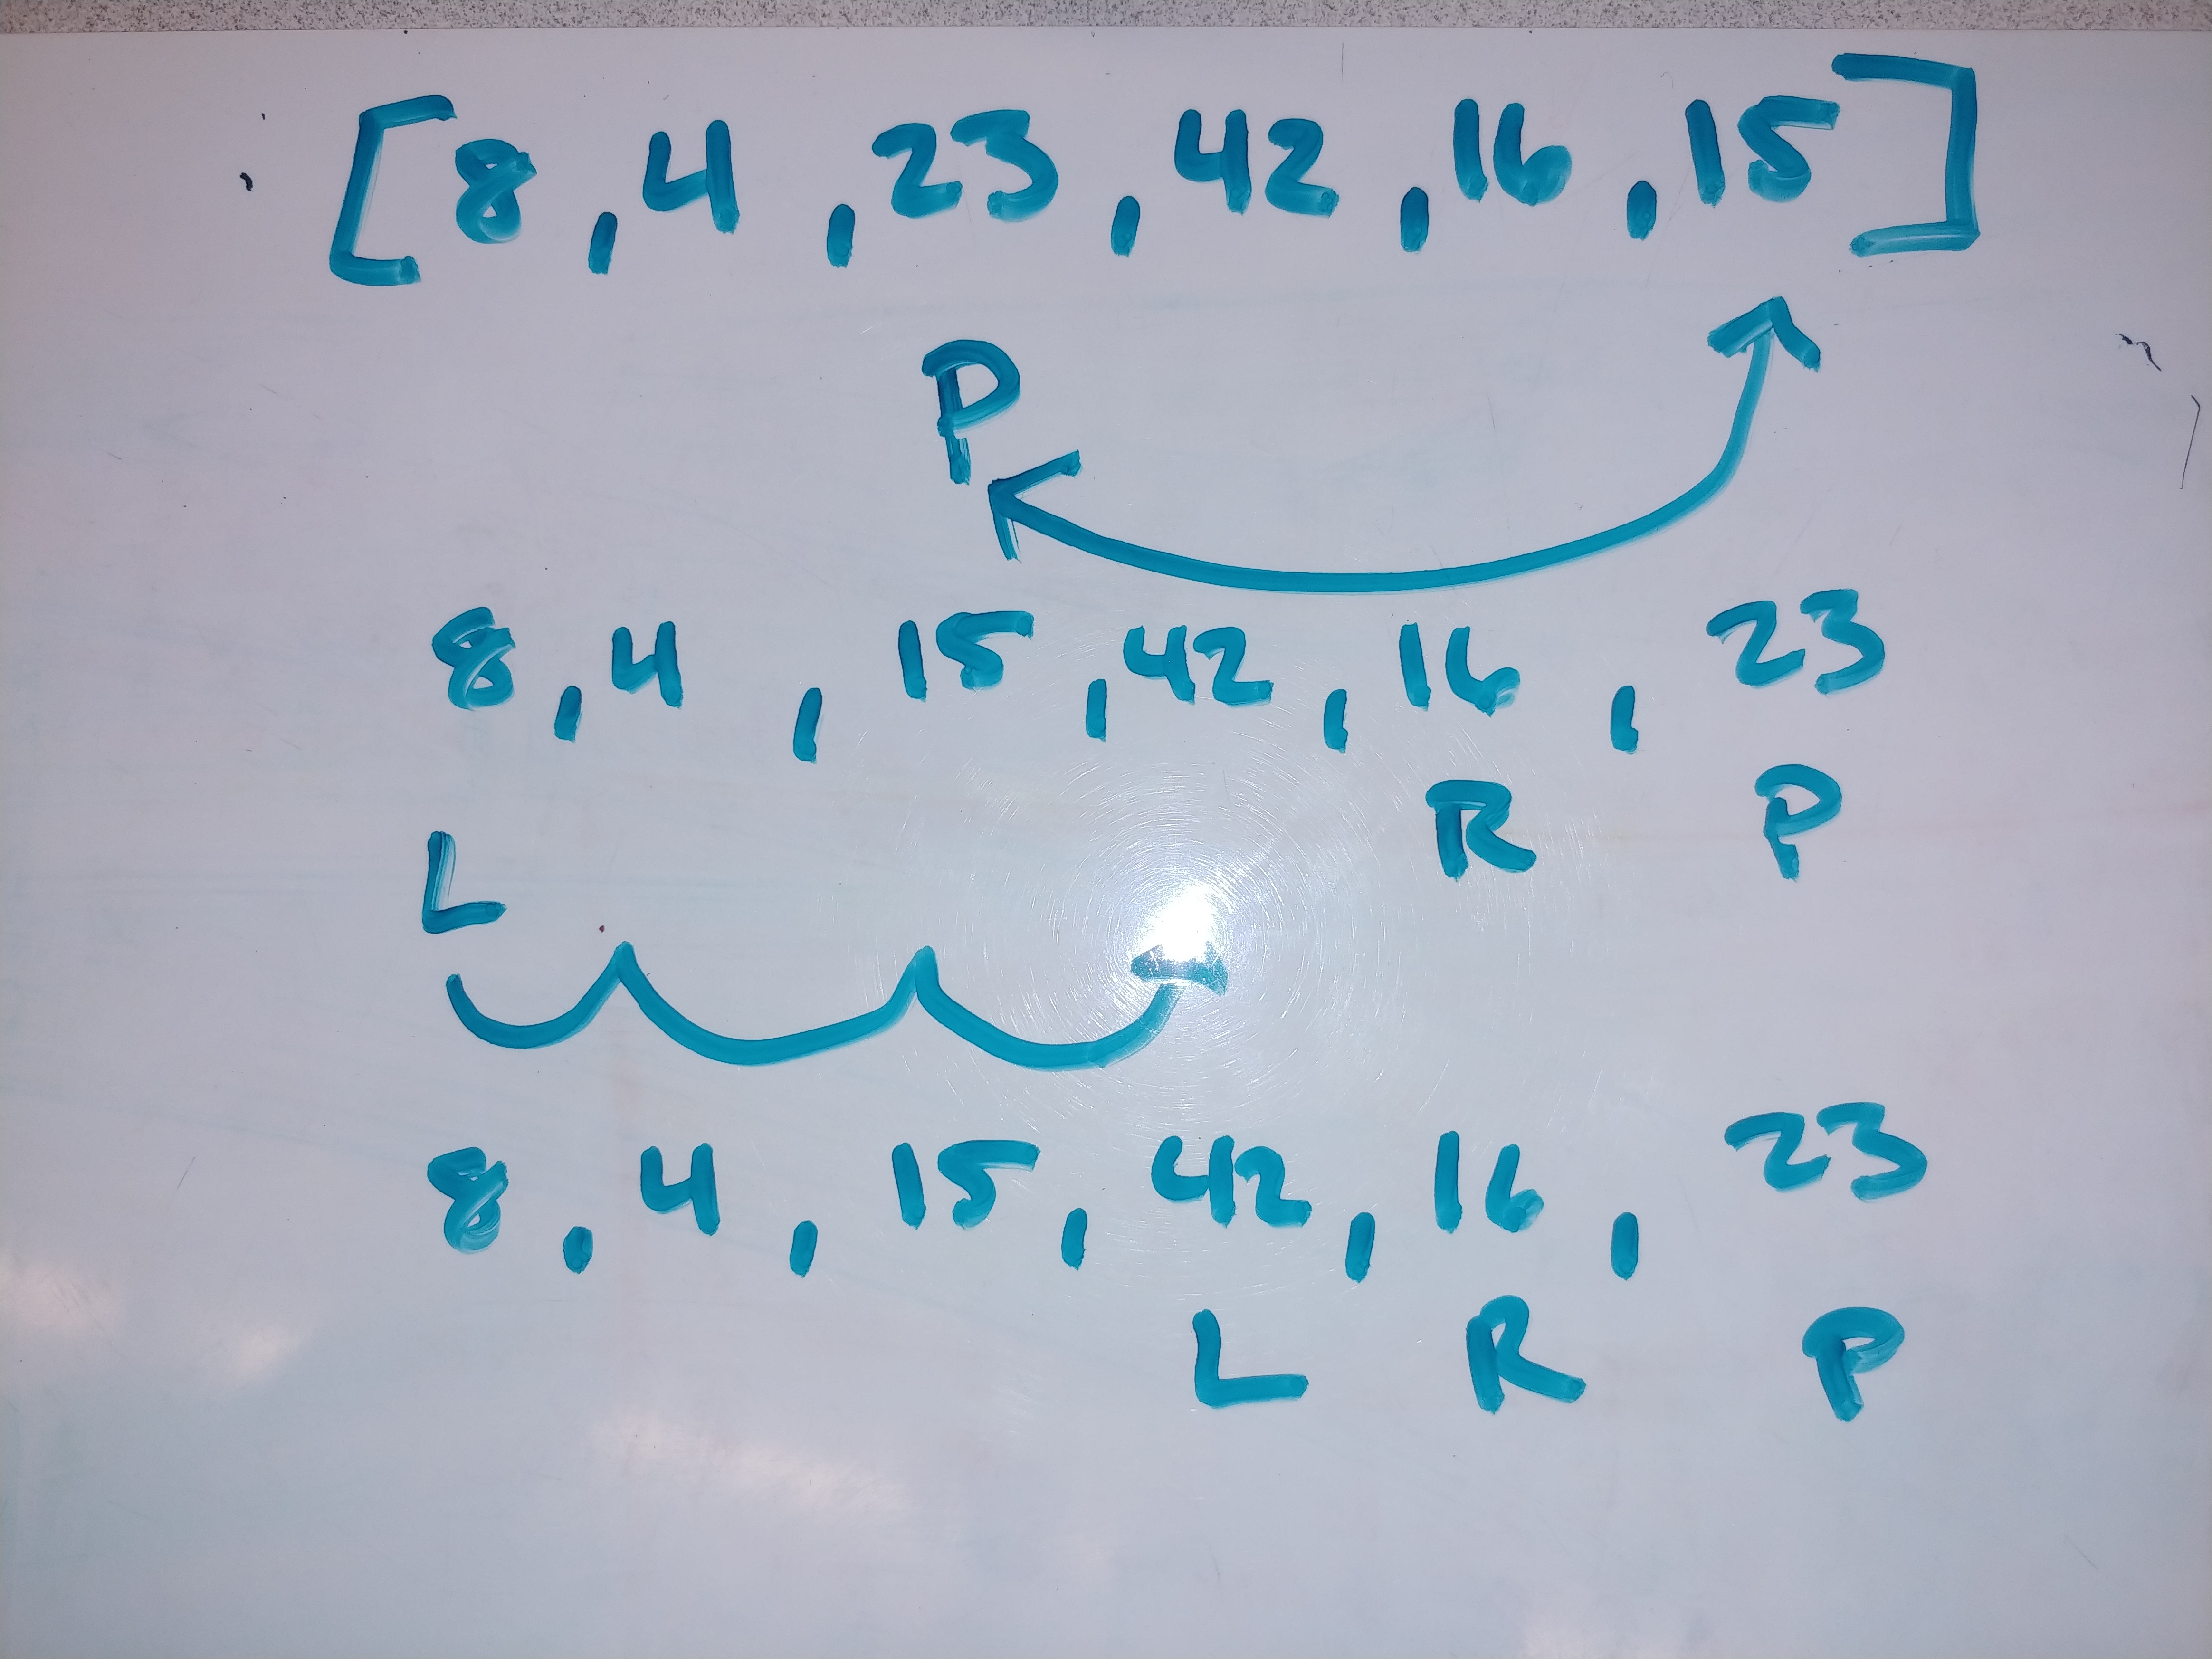 [8, 4, 23, 42, 16, 15]
P
8, 4, 15, 42, 16, 23
L R P
8, 4, 15, 42, 16, 23
L R P